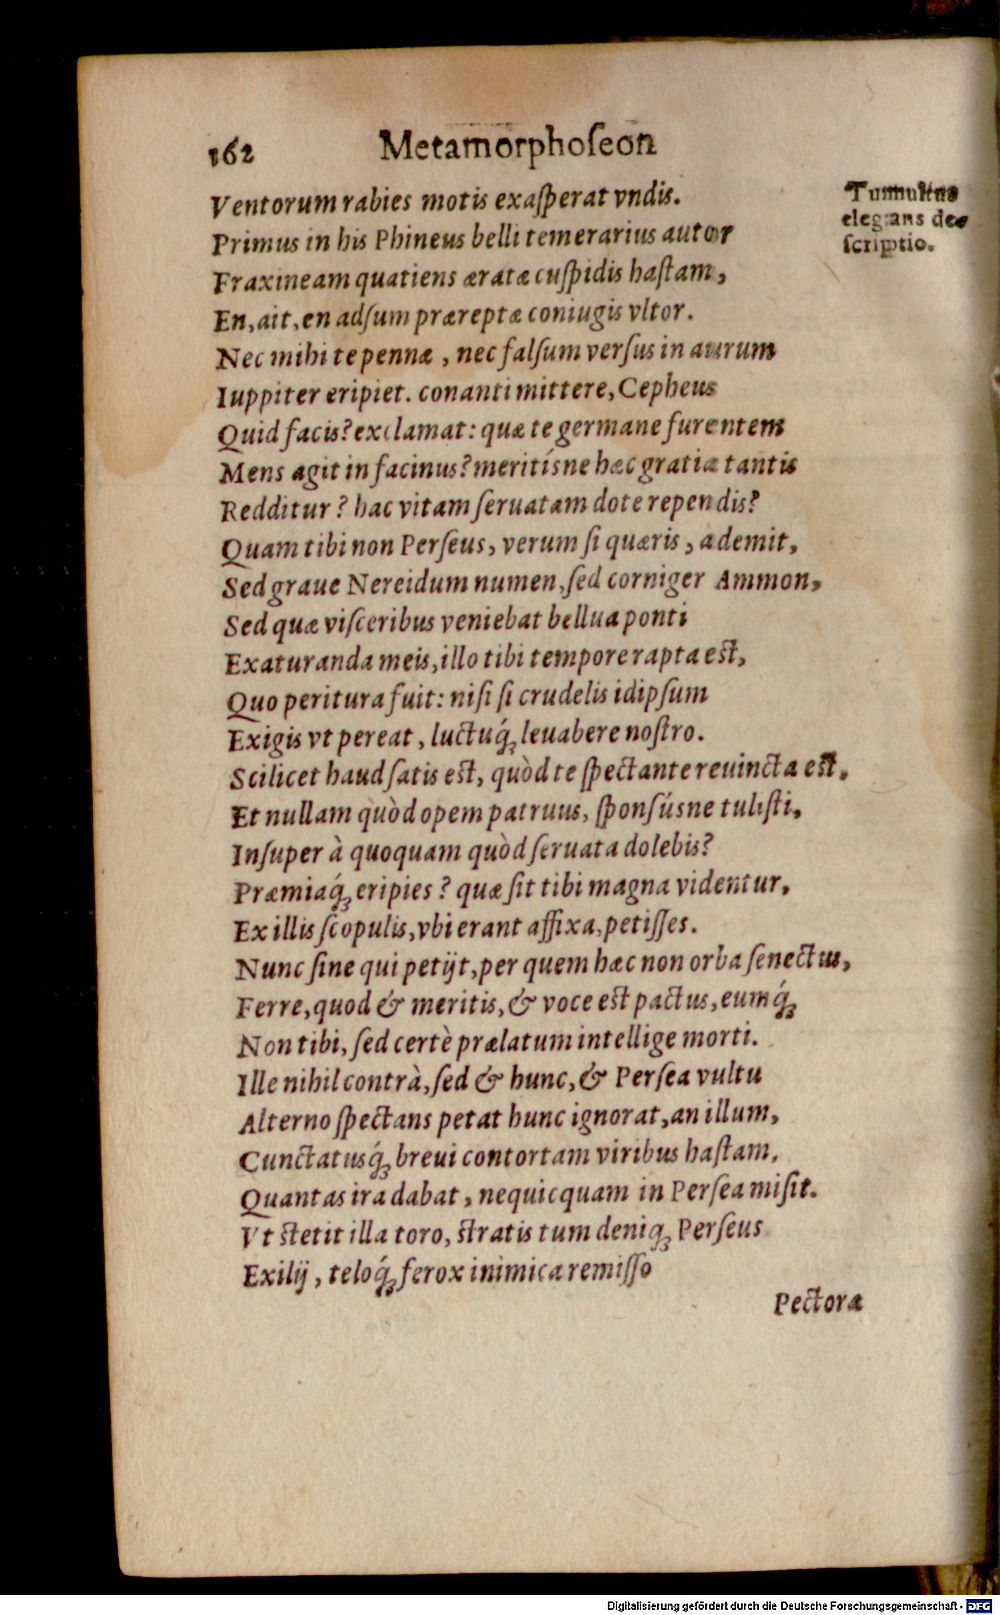 162 Metamorphoſeon
Ventorum rabies motis exaſperat vndis.
Tumultus
elegans de-
ſcriptio.
Primus in his Phineus belli temerarius autor
Fraxineam quatiens æratæ cuſpidis haſtam,
En, ait, en adſum præreptæ coniugis vltor.
Nec mihi te pennæ, nec falſum verſus in aurum
Iuppiter eripiet. conanti mittere, Cepheus
Quid facis? exclamat: quæ te germane furentem
Mens agit in facinus? meritíſne hæc gratia tantis
Redditur? hac vitam ſeruatam dote rependis?
Quam tibi non Perſeus, verum ſi quæris, ademit,
Sed graue Nereidum numen, ſed corniger Ammon,
Sed quæ viſceribus veniebat bellua ponti
Exaturanda meis, illo tibi tempore rapta eſt,
Quo peritura fuit: niſi ſi crudelis id ipſum
Exigis vt pereat, luctuq́; leuabere noſtro.
Scilicet haud ſatis eſt, quòd te ſpectante reuincta eſt,
Et nullam quòd opem patruus, ſponſúsne tuliſti,
Inſuper à quoquam quòd ſeruata dolebis?
Præmiaq́; eripies? quæ ſit tibi magna videntur,
Ex illis ſcopulis, vbi erant affixa, petiſſes.
Nunc ſine qui petijt, per quem hæc non orba ſenectus,
Ferre, quod & meritis, & voce eſt pactus, eumq́;
Non tibi, ſed certè prælatum intellige morti.
Ille nihil contrà, ſed & hunc, & Perſea vultu
Alterno ſpectans petat hunc ignorat, an illum,
Cunctatusq́; breui contortam viribus haſtam,
Quantas ira dabat, nequicquam in Perſea miſit.
Vt ſtetit illa toro, ſtratis tum deniq; Perſeus
Exilij, teloq́; ferox inimica remiſſo
Pectora
Digitalisierung gefördert durch die Deutsche Forschungsgemeinschaft - DFG